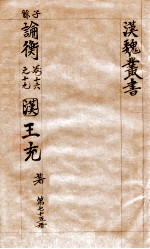 漢魏叢書
子餘
論衡
卷十六
之十九
漢王充
著
第七十五冊